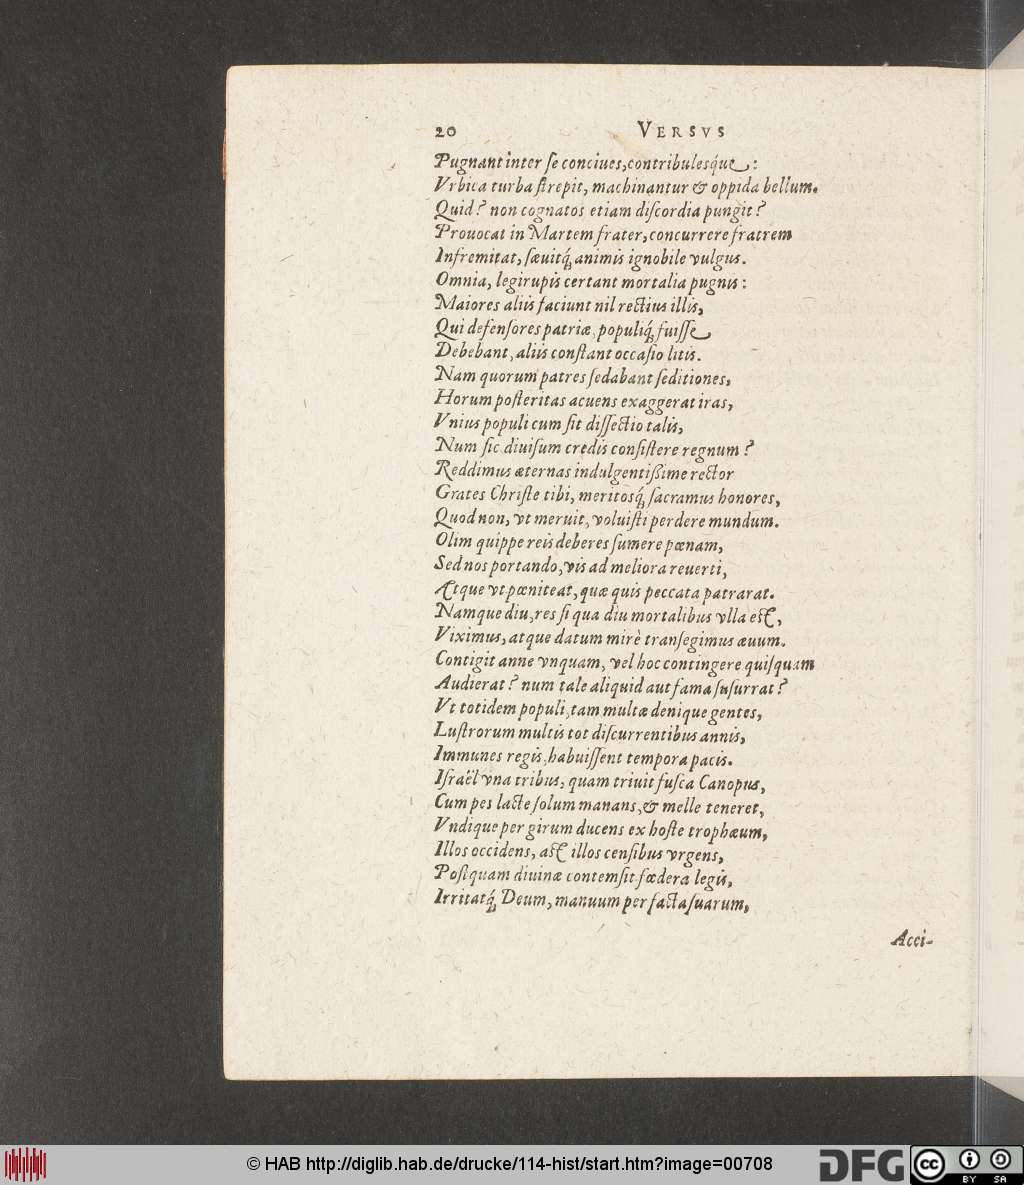 20 VERSVS
Pugnant inter se conciues, contribulesq́ue:
Vrbica turba ſtrepit, machinantur & oppida bellum.
Quid? non cognatos etiam diſcordia pungit?
Prouocat in Martem frater, concurrere fratrem
Infremitat, ſæuitq́; animis ignobile vulgus.
Omnia, legirupis certant mortalia pugnis:
Maiores aliis faciunt nil rectius illis,
Qui defenſores patriæ, populiq́; fuiſſe
Debebant, aliis conſtant occaſio litis.
Nam quorum patres ſedabant ſeditiones,
Horum poſteritas acuens exaggerat iras,
Vnius populi cum ſit diſſectio talis,
Num ſic diuiſum credis conſiſtere regnum?
Reddimus æternas indulgentißime rector
Grates Chriſte tibi, meritosq́; ſacramus honores,
Quod non, vt meruit, voluiſti perdere mundum.
Olim quippe reis deberes ſumere pœnam,
Sed nos portando, vis ad meliora reuerti,
Ætque vt pœniteat, quæ quis peccata patrarat.
Namque diu, res ſi qua diu mortalibus vlla eſt,
Viximus, atque datum mirè tranſegimus æuum.
Contigit anne vnquam, vel hoc contingere quiſquam
Audierat? num tale aliquid aut fama ſuſurrat?
Vt totidem populi, tam multæ denique gentes,
Luſtrorum multis tot diſcurrentibus annis,
Immunes regis, habuiſſent tempora pacis.
Iſraël vna tribus, quam triuit fuſca Canopus,
Cum pes lacte ſolum manans, & melle teneret,
Vndique per girum ducens ex hoſte trophæum,
Illos occidens, aſt illos cenſibus vrgens,
Poſtquam diuinæ contemſit fœdera legis,
Irritatq́; Deum, manuum per facta ſuarum,
Acci-
© HAB http://diglib.hab.de/drucke/114-hist/start.htm?image=00708
DFG
cc
BY SA